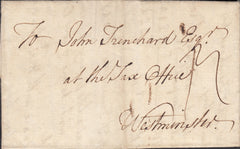 To John Trenchard Esqr.
at the Tax Office
Westminster.